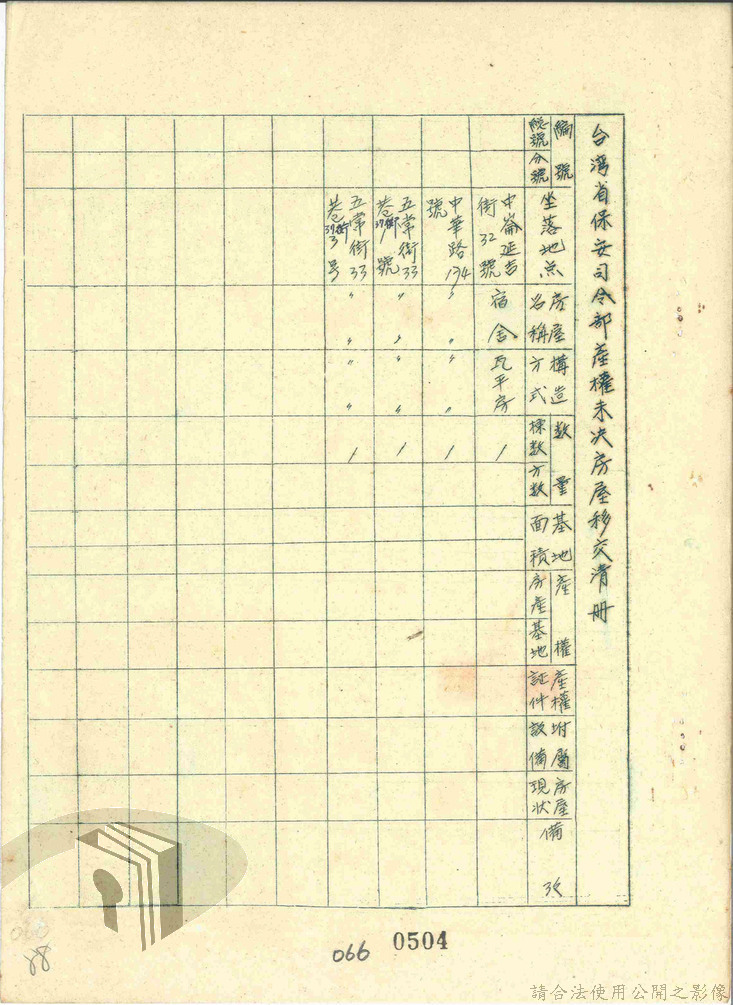 台湾省保安司令部產權未决房屋移交清册
編號
總號
分號
坐落地点
房屋名稱
構造方式
数量
棟数
方数
基地面積
產權
房產
基地
產權証件
附屬設備
房屋現状
備
中崙延吉街32號
宿舍
瓦平房
1
中華路174號
〃 〃
〃 〃
1
五常街33巷37號
〃 〃
〃 〃
1
五常街33巷
3号
〃 〃
〃 〃
1
066
0504
88
請合法使用公開之影像